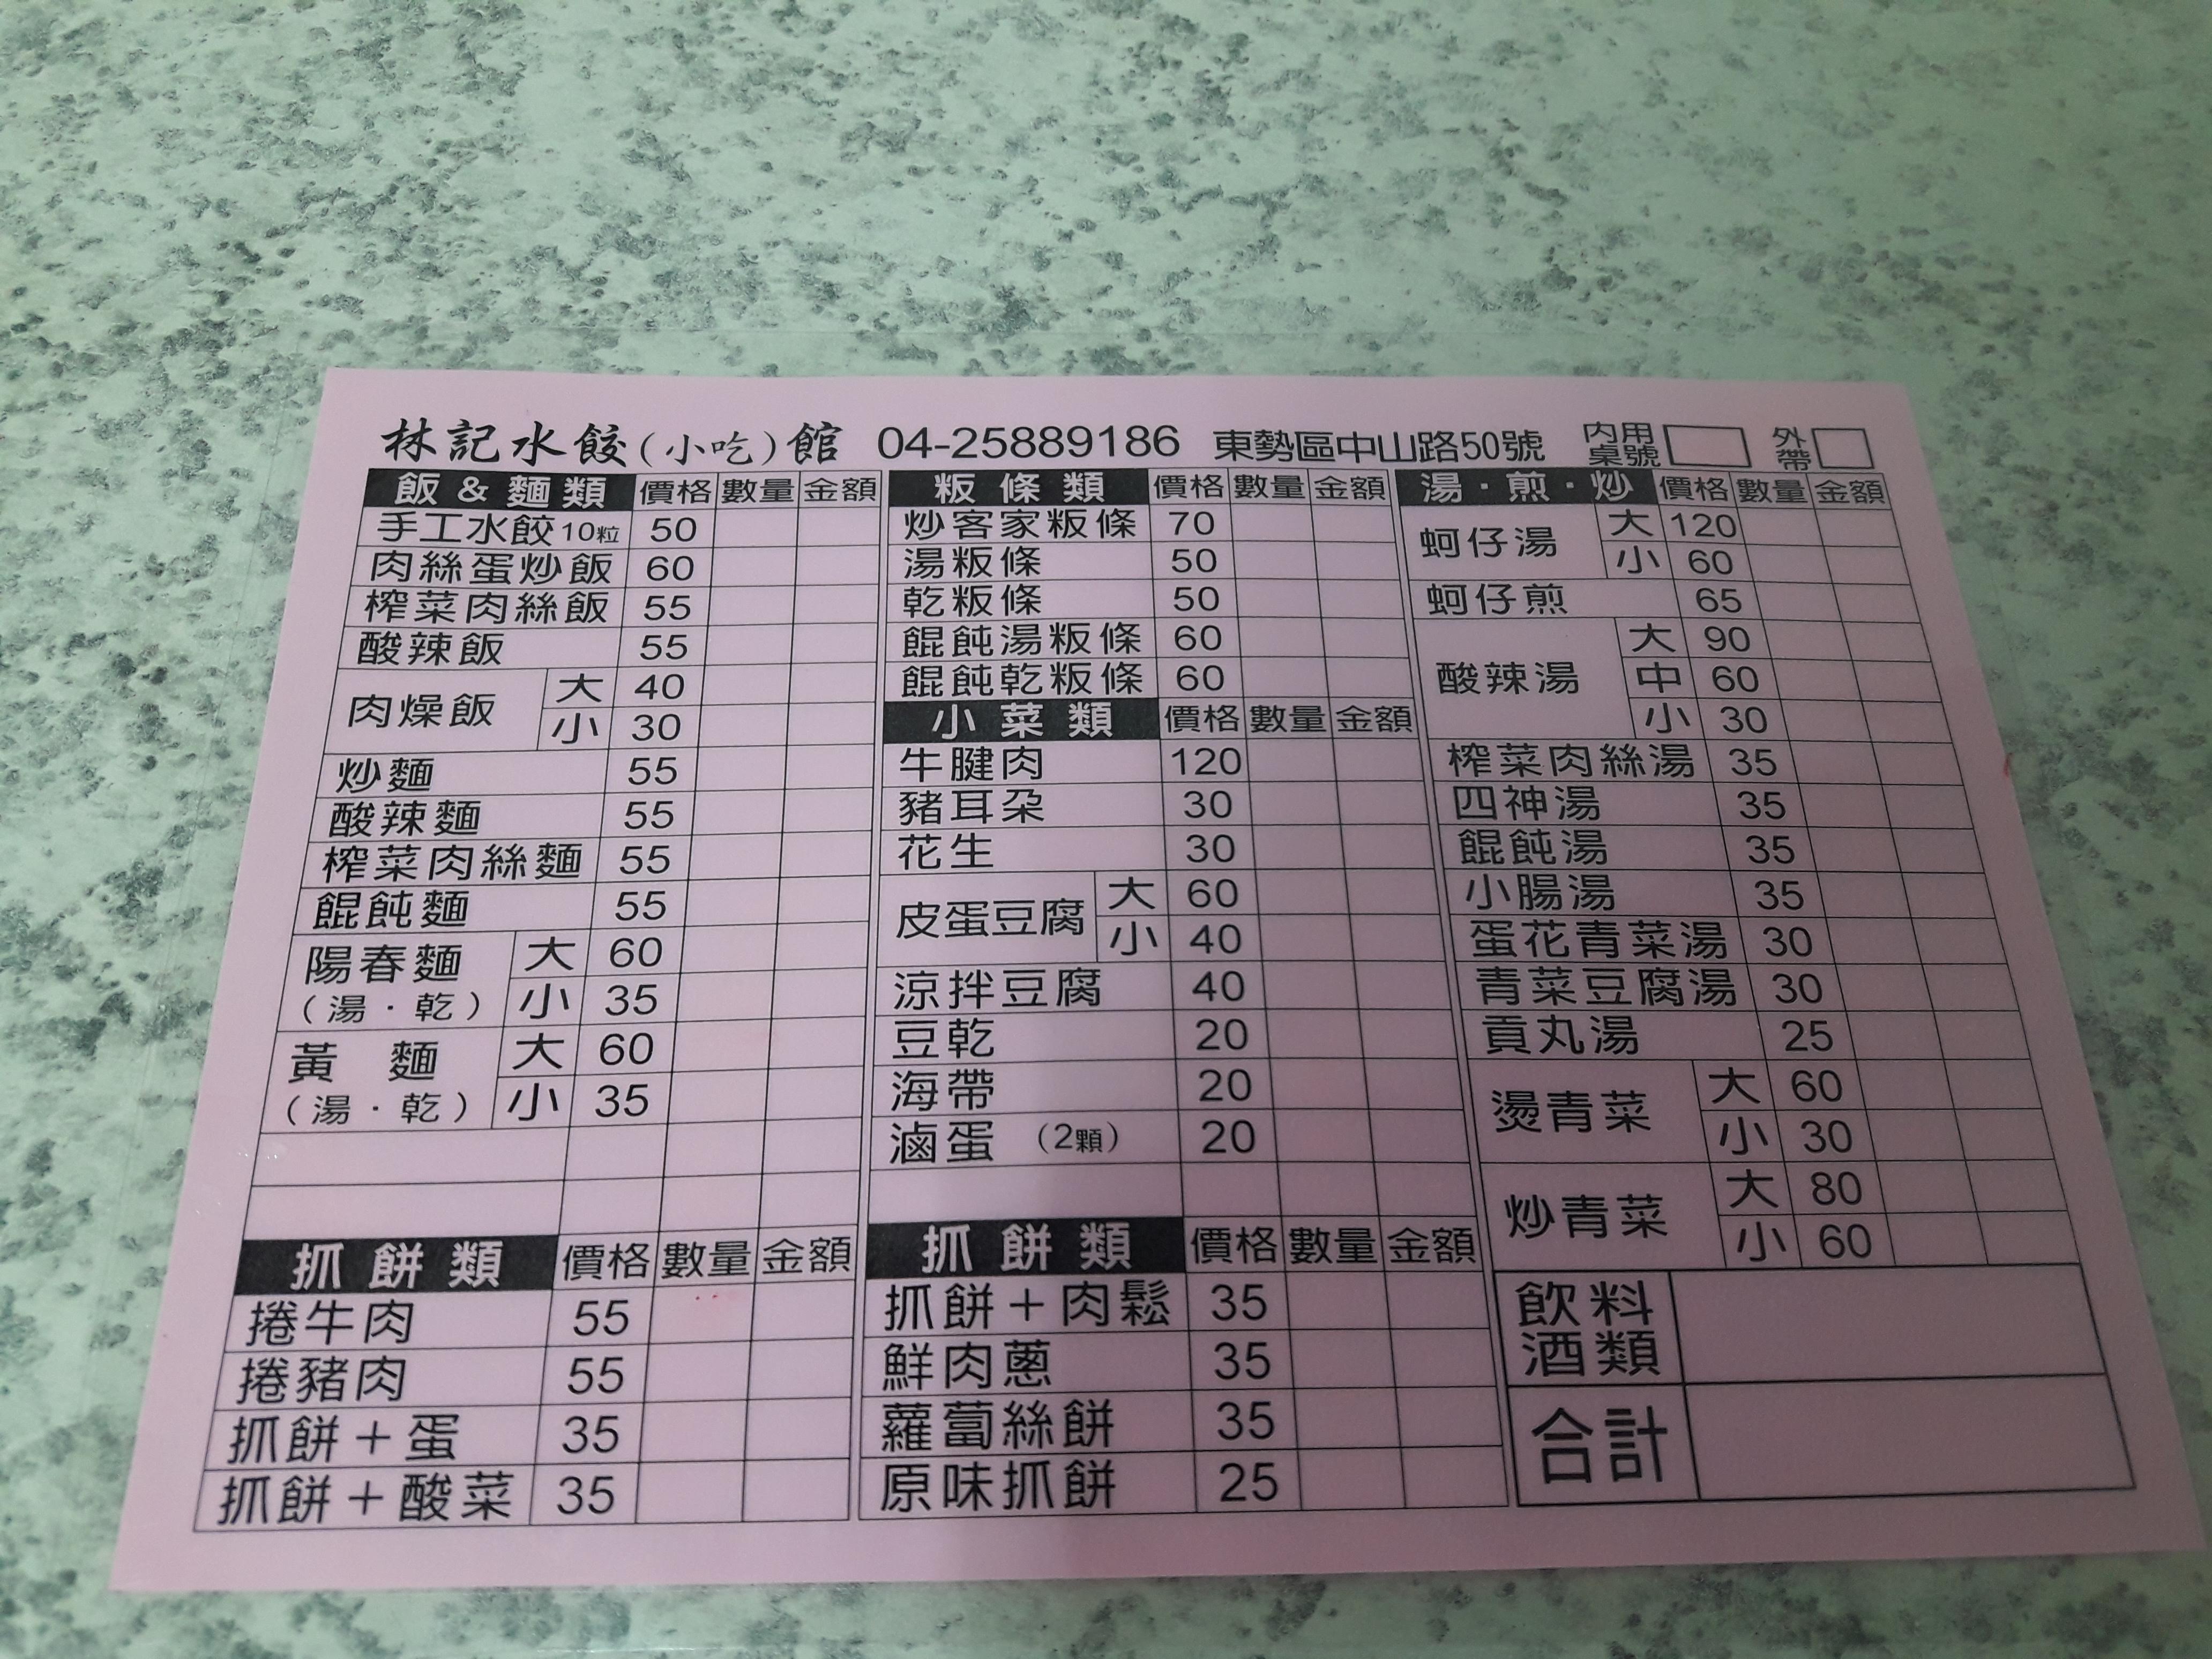 林記水餃(小吃)館 04-25889186 東勢區中山路50號 內用桌號 外帶
飯&麵類 價格 數量 金額
手工水餃10粒 50
肉絲蛋炒飯 60
榨菜肉絲飯 55
酸辣飯 55
肉燥飯 大 40
小 30
炒麵 55
酸辣麵 55
榨菜肉絲麵 55
餛飩麵 55
陽春麵 大 60
(湯·乾) 小 35
黃麵 大 60
(湯·乾) 小 35
抓餅類 價格 數量 金額
捲牛肉 55
捲豬肉 55
抓餅+蛋 35
抓餅+酸菜 35
粄條類 價格 數量 金額
炒客家粄條 70
湯粄條 50
乾粄條 50
餛飩湯粄條 60
餛飩乾粄條 60
小菜類 價格 數量 金額
牛腱肉 120
豬耳朵 30
花生 30
皮蛋豆腐 大 60
小 40
涼拌豆腐 40
豆乾 20
海帶 20
滷蛋 (2顆) 20
抓餅類 價格 數量 金額
抓餅+肉鬆 35
鮮肉蔥 35
蘿蔔絲餅 35
原味抓餅 25
湯·煎·炒 價格 數量 金額
蚵仔湯 大 120
小 60
蚵仔煎 65
酸辣湯 大 90
中 60
小 30
榨菜肉絲湯 35
四神湯 35
餛飩湯 35
小腸湯 35
蛋花青菜湯 30
青菜豆腐湯 30
貢丸湯 25
燙青菜 大 60
小 30
炒青菜 大 80
小 60
飲料
酒類
合計